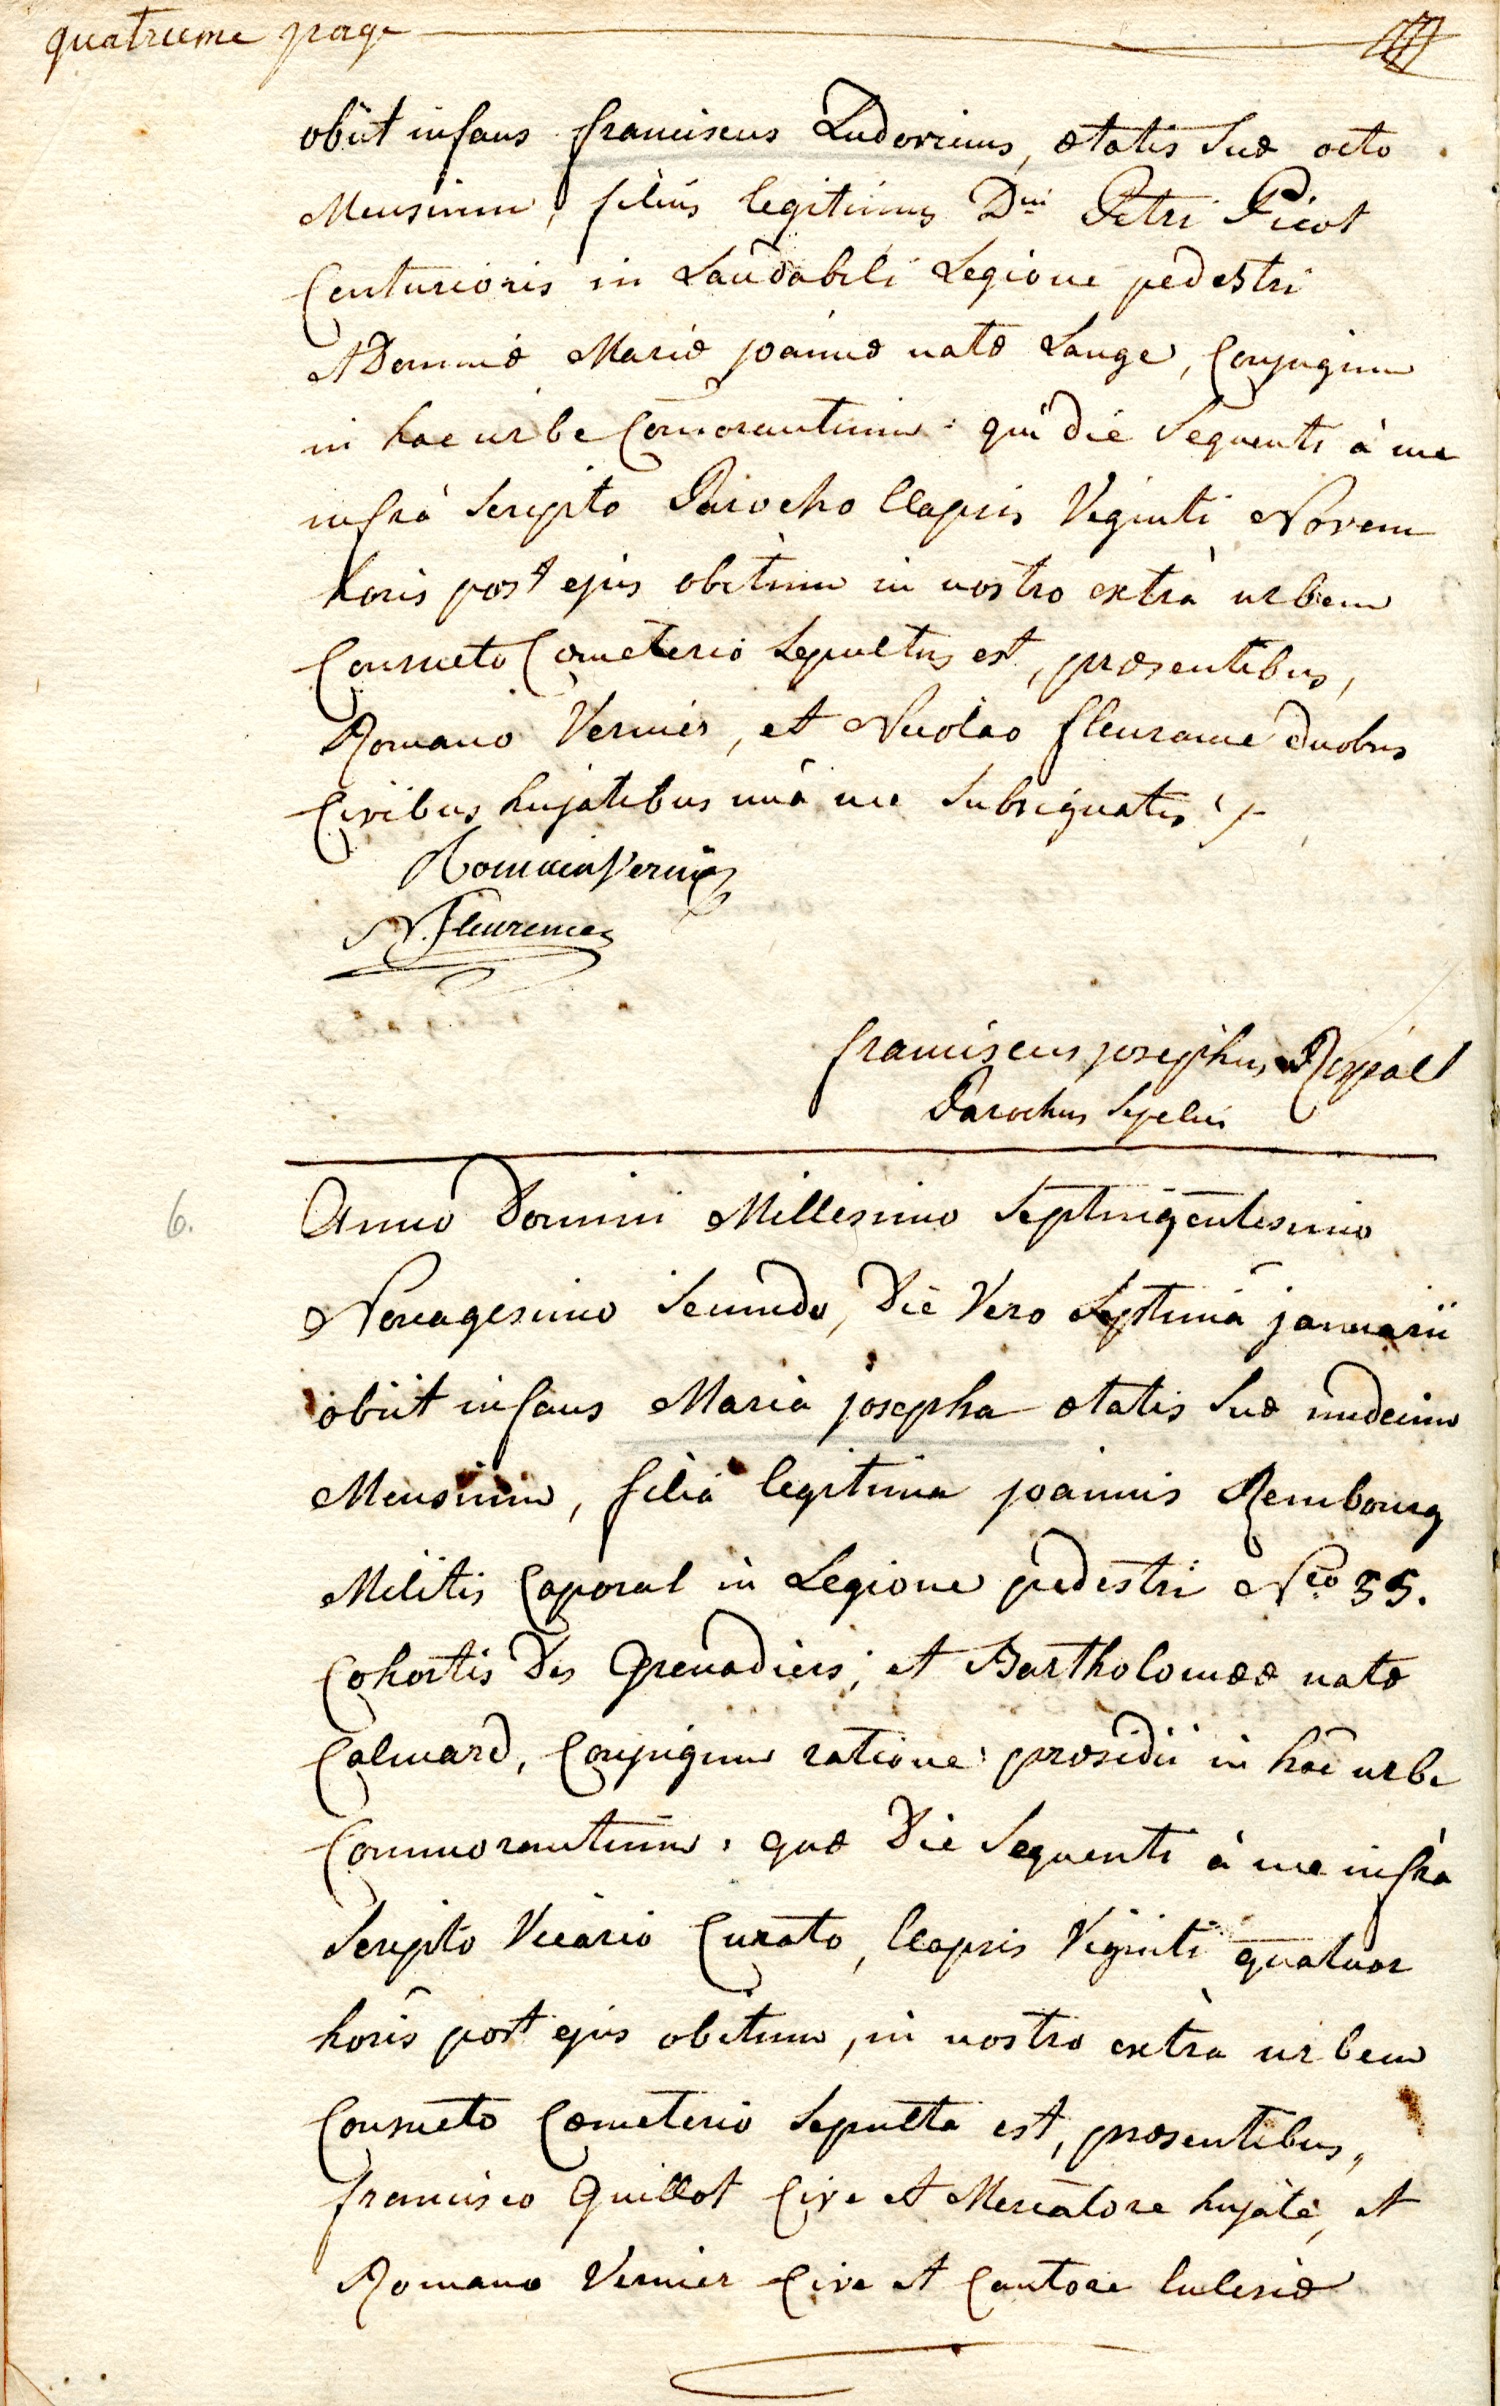 quatrieme page
obiit infans franciscus Ludovicus, ætatis suæ octo
Mensium, filius legitimus Dni Petri Picot
Centurionis in Laudabili Legione pedestri
et Dominæ Mariæ joannæ natæ Lange, Conjugum
in hac urbe Comorantium: qui die sequenti à me
infrà scripto Parocho Elapsis Viginti Novem
horis post ejus obitum in nostro extrà urbem
Consueto Cometerio sepultus est, præsentibus,
Romano Vernier, et Nicolao fleurance duobus
Civibus hujatibus unà me subsignatis
Romain Vernier
N. Fleurence
franciscus josephus Rispalt
Parochus sepelivi
6.
Anno Domini Millesimo Septingentesimo
Nonagesimo Secundo, Die Vero Septimâ januarii
obiit infans Maria josepha ætatis suæ undecim
Mensium, filia legitima joannis Rembourg
Militis Caporal in Legione pedestri Nro 55.
Cohortis Des Grenadiers; et Bartholomææ natæ
Calmard, Conjugum ratione præsidii in hâc urbe
Commorantium: quæ Die sequenti à me infrà
Scripto Vicario Curato, Elapsis Viginti quatuor
horis post ejus obitum, in nostro extrà urbem
Consueto Cœmeterio sepulta est, præsentibus,
francisco Guillot Cive et Mercatore hujate, et
Romano Vernier Cive et Cantore Eclesiæ